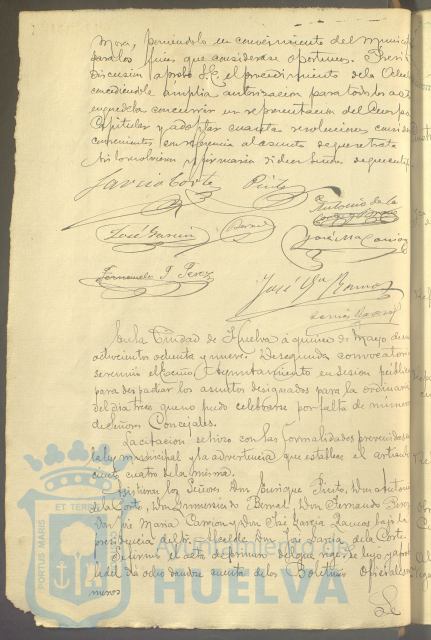 Mora, poniéndolo en conocimiento del Municipio
para los fines que considerase oportunos. Previa
discusion aprobó S.E. el procedimiento de la Alcal
concediéndole amplia autorizacion para todos los
en que deba concurrir en representacion del Cuerpo
Capitular y adoptar cuantas resoluciones considere
convenientes con referencia al asunto de que se trata
Así lo resolvieron y firmarán si dicen sendos de que certifico
García Corte Pinto Antonio de la
Corte y
José García Bernal José Ma Carrion
Fernando P. Perez José Ma
En la Ciudad de Huelva á quince de Mayo de mil
ochocientos ochenta y nueve. De segunda convocatoria
se reunió el Excmo Ayuntamiento en sesion pública
para despachar los asuntos designados para la ordinaria
del dia trece que no pudo celebrarse por falta de número
de Señores Concejales.
La citacion se hizo con las formalidades prevenidas en
la ley municipal y la advertencia que establece el artículo
ciento cuatro de la misma.
Asistieron los Señores Don Enrique Pinto, Don Antonio
de la Corte, Don Bernal, Don Fernando Perez
Don José Maria Carrion y Don José García bajo la
presidencia del Sr. Alcalde Don José García de la Corte.
Principió el acto de
el dia ocho dandose cuenta de los Boletines Oficiales
meros
PORTUS MARIS ET TERRAE
Ayuntamiento de
HUELVA